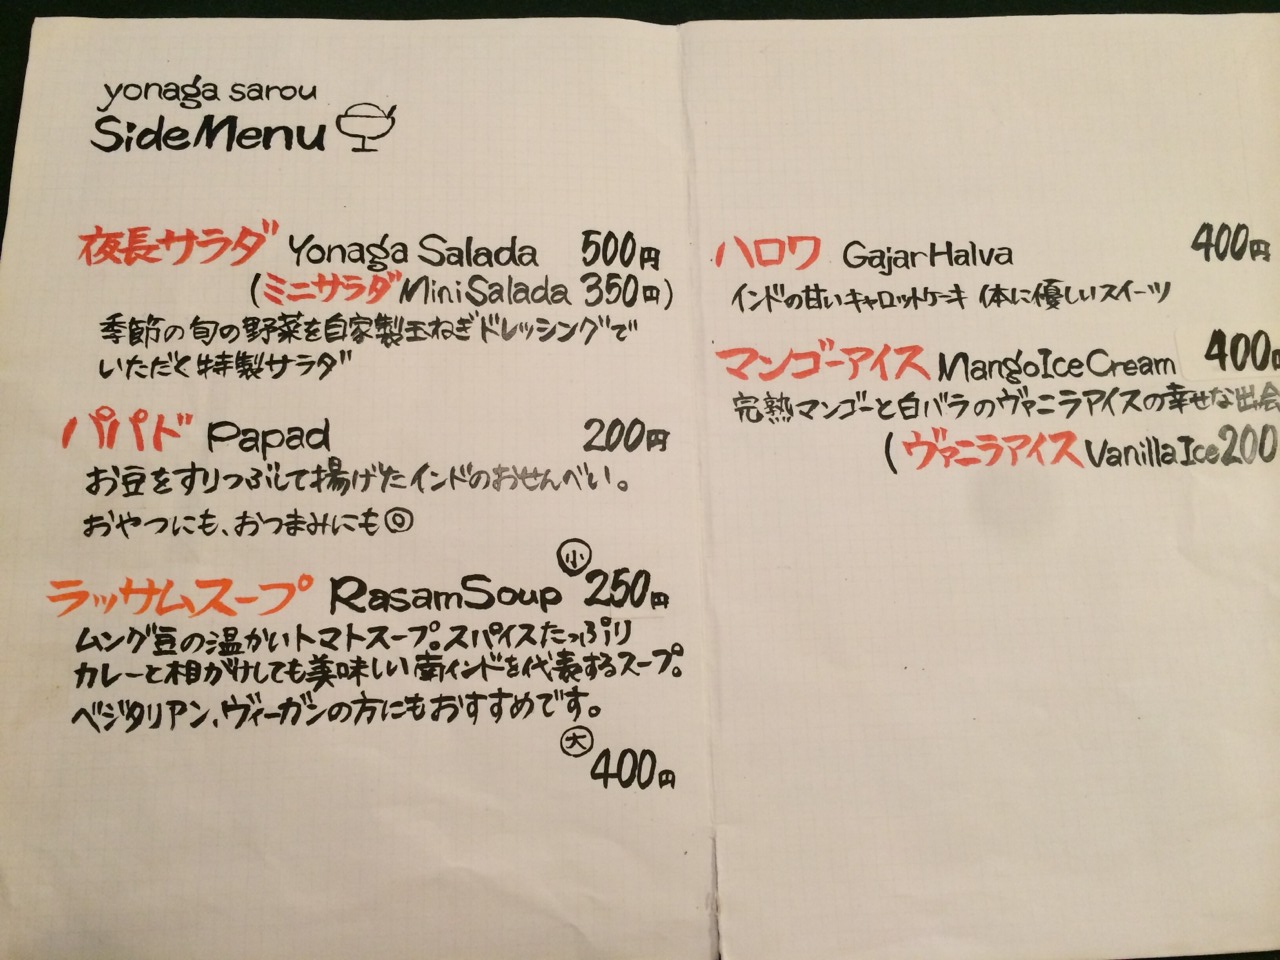 yonaga sarou
SideMenu
夜長サラダ Yonaga Salada 500円
(ミニサラダ Mini Salada 350円)
季節の旬の野菜を自家製玉ねぎドレッシングで
いただく特製サラダ
パパド Papad 200円
お豆をすりつぶして揚げたインドのおせんべい。
おやつにも、おつまみにも◎
ラッサムスープ Rasam Soup 小 250円
ムング豆の温かいトマトスープ。スパイスたっぷり
カレーと相がけしても美味しい南インドを代表するスープ。
ベジタリアン、ヴィーガンの方にもおすすめです。
大
400円
ハロワ Gajar Halva 400円
インドの甘いキャロットケーキ 体に優しいスイーツ
マンゴーアイス Mango Ice Cream 400円
完熟マンゴーと白バラのヴァニラアイスの幸せな出会
(ヴァニラアイス Vanilla Ice 200